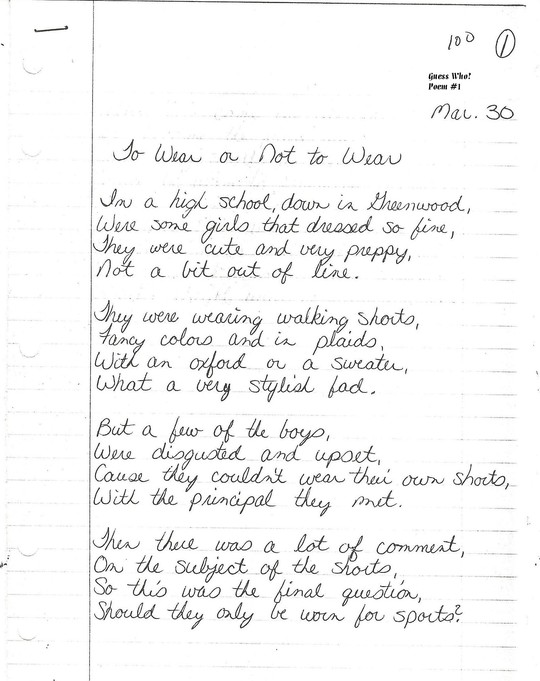 100 1
Guess Who!
Poem #1
Mar. 30
To Wear or Not to Wear
In a high school, down in Greenwood,
Were some girls that dressed so fine,
They were cute and very preppy,
Not a bit out of line.
They were wearing walking shorts,
Fancy colors and in plaids,
With an oxford or a sweater,
What a very stylish fad.
But a few of the boys,
Were disgusted and upset,
Cause they couldn't wear their own shorts,
With the principal they met.
Then there was a lot of comment,
On the subject of the shorts,
So this was the final question,
Should they only be worn for sports?